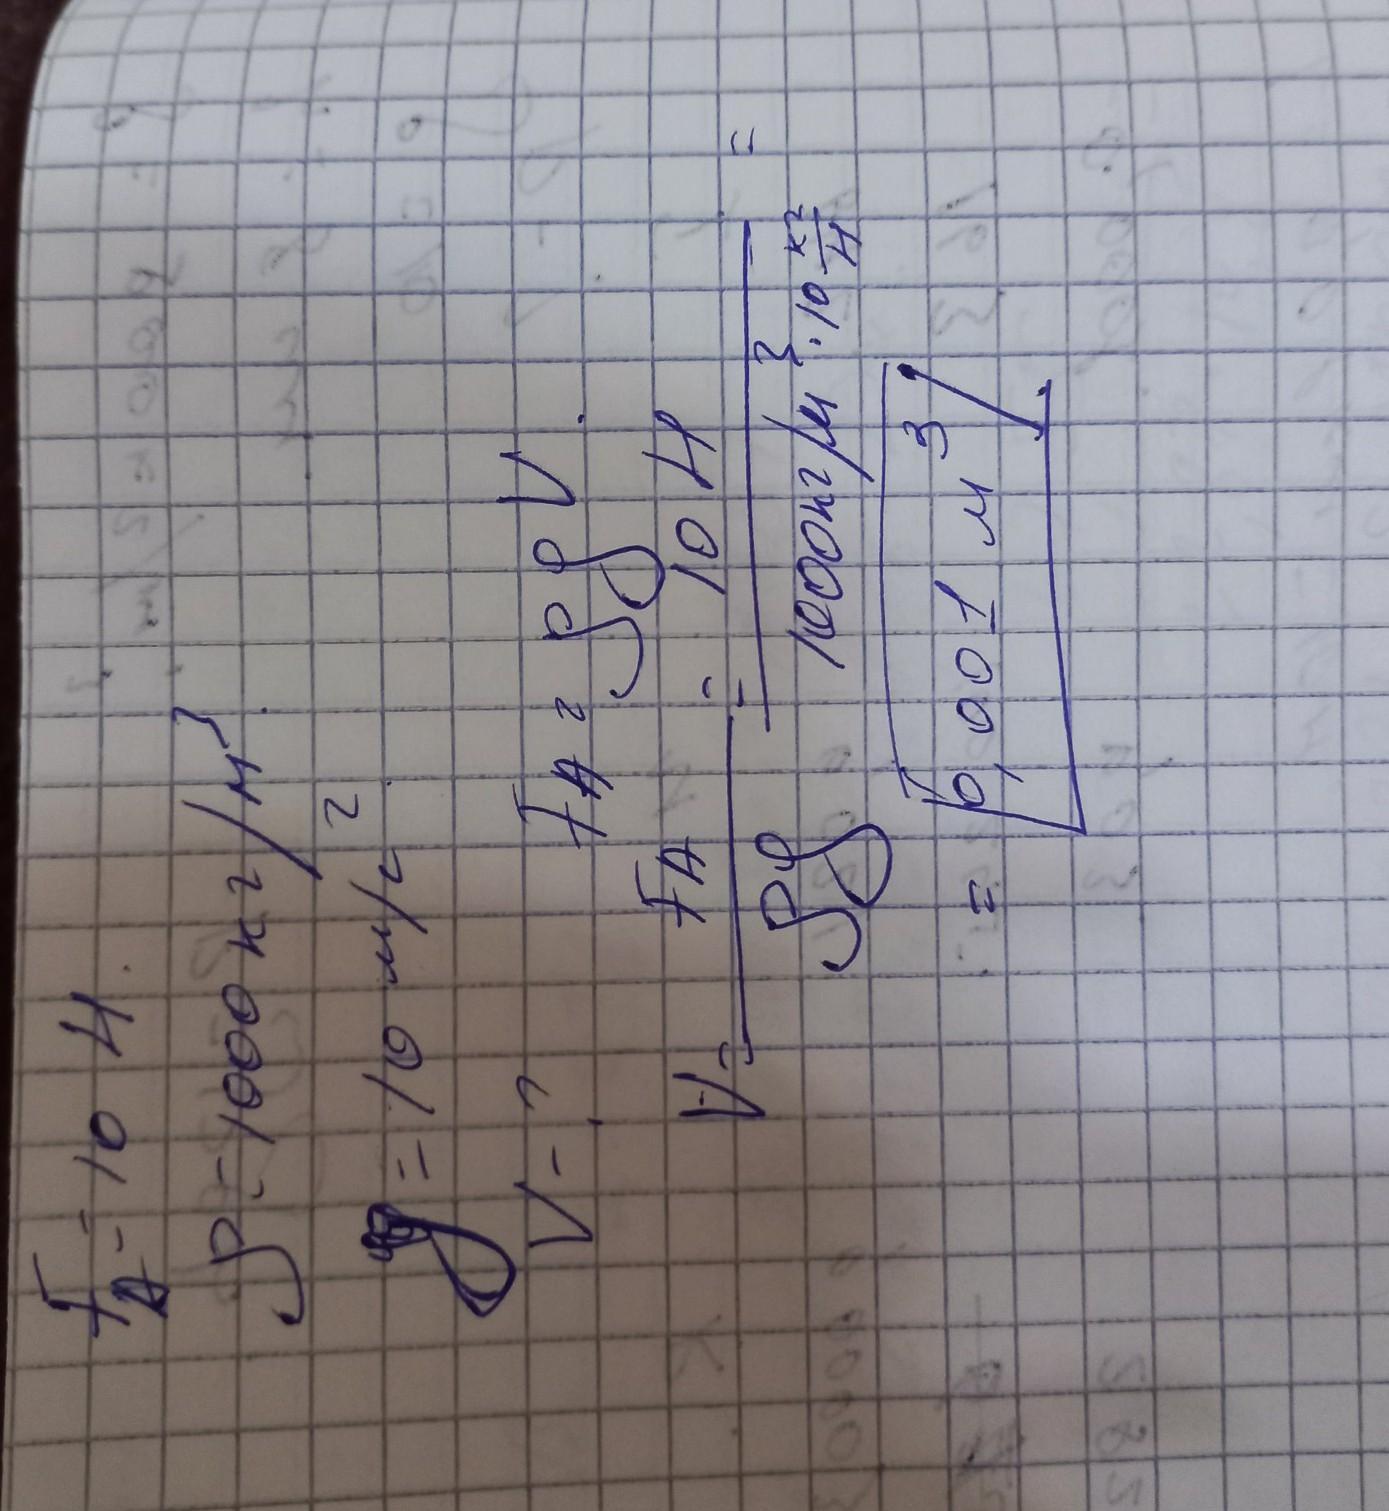 F_A = 10 Н
ρ = 1000 кг/м³
g = 10 м/с²
V - ?
F_A = ρgV
V = F_A / ρg = 10 Н / 1000кг/м³ · 10 кг/Н =
= 0,001 м³